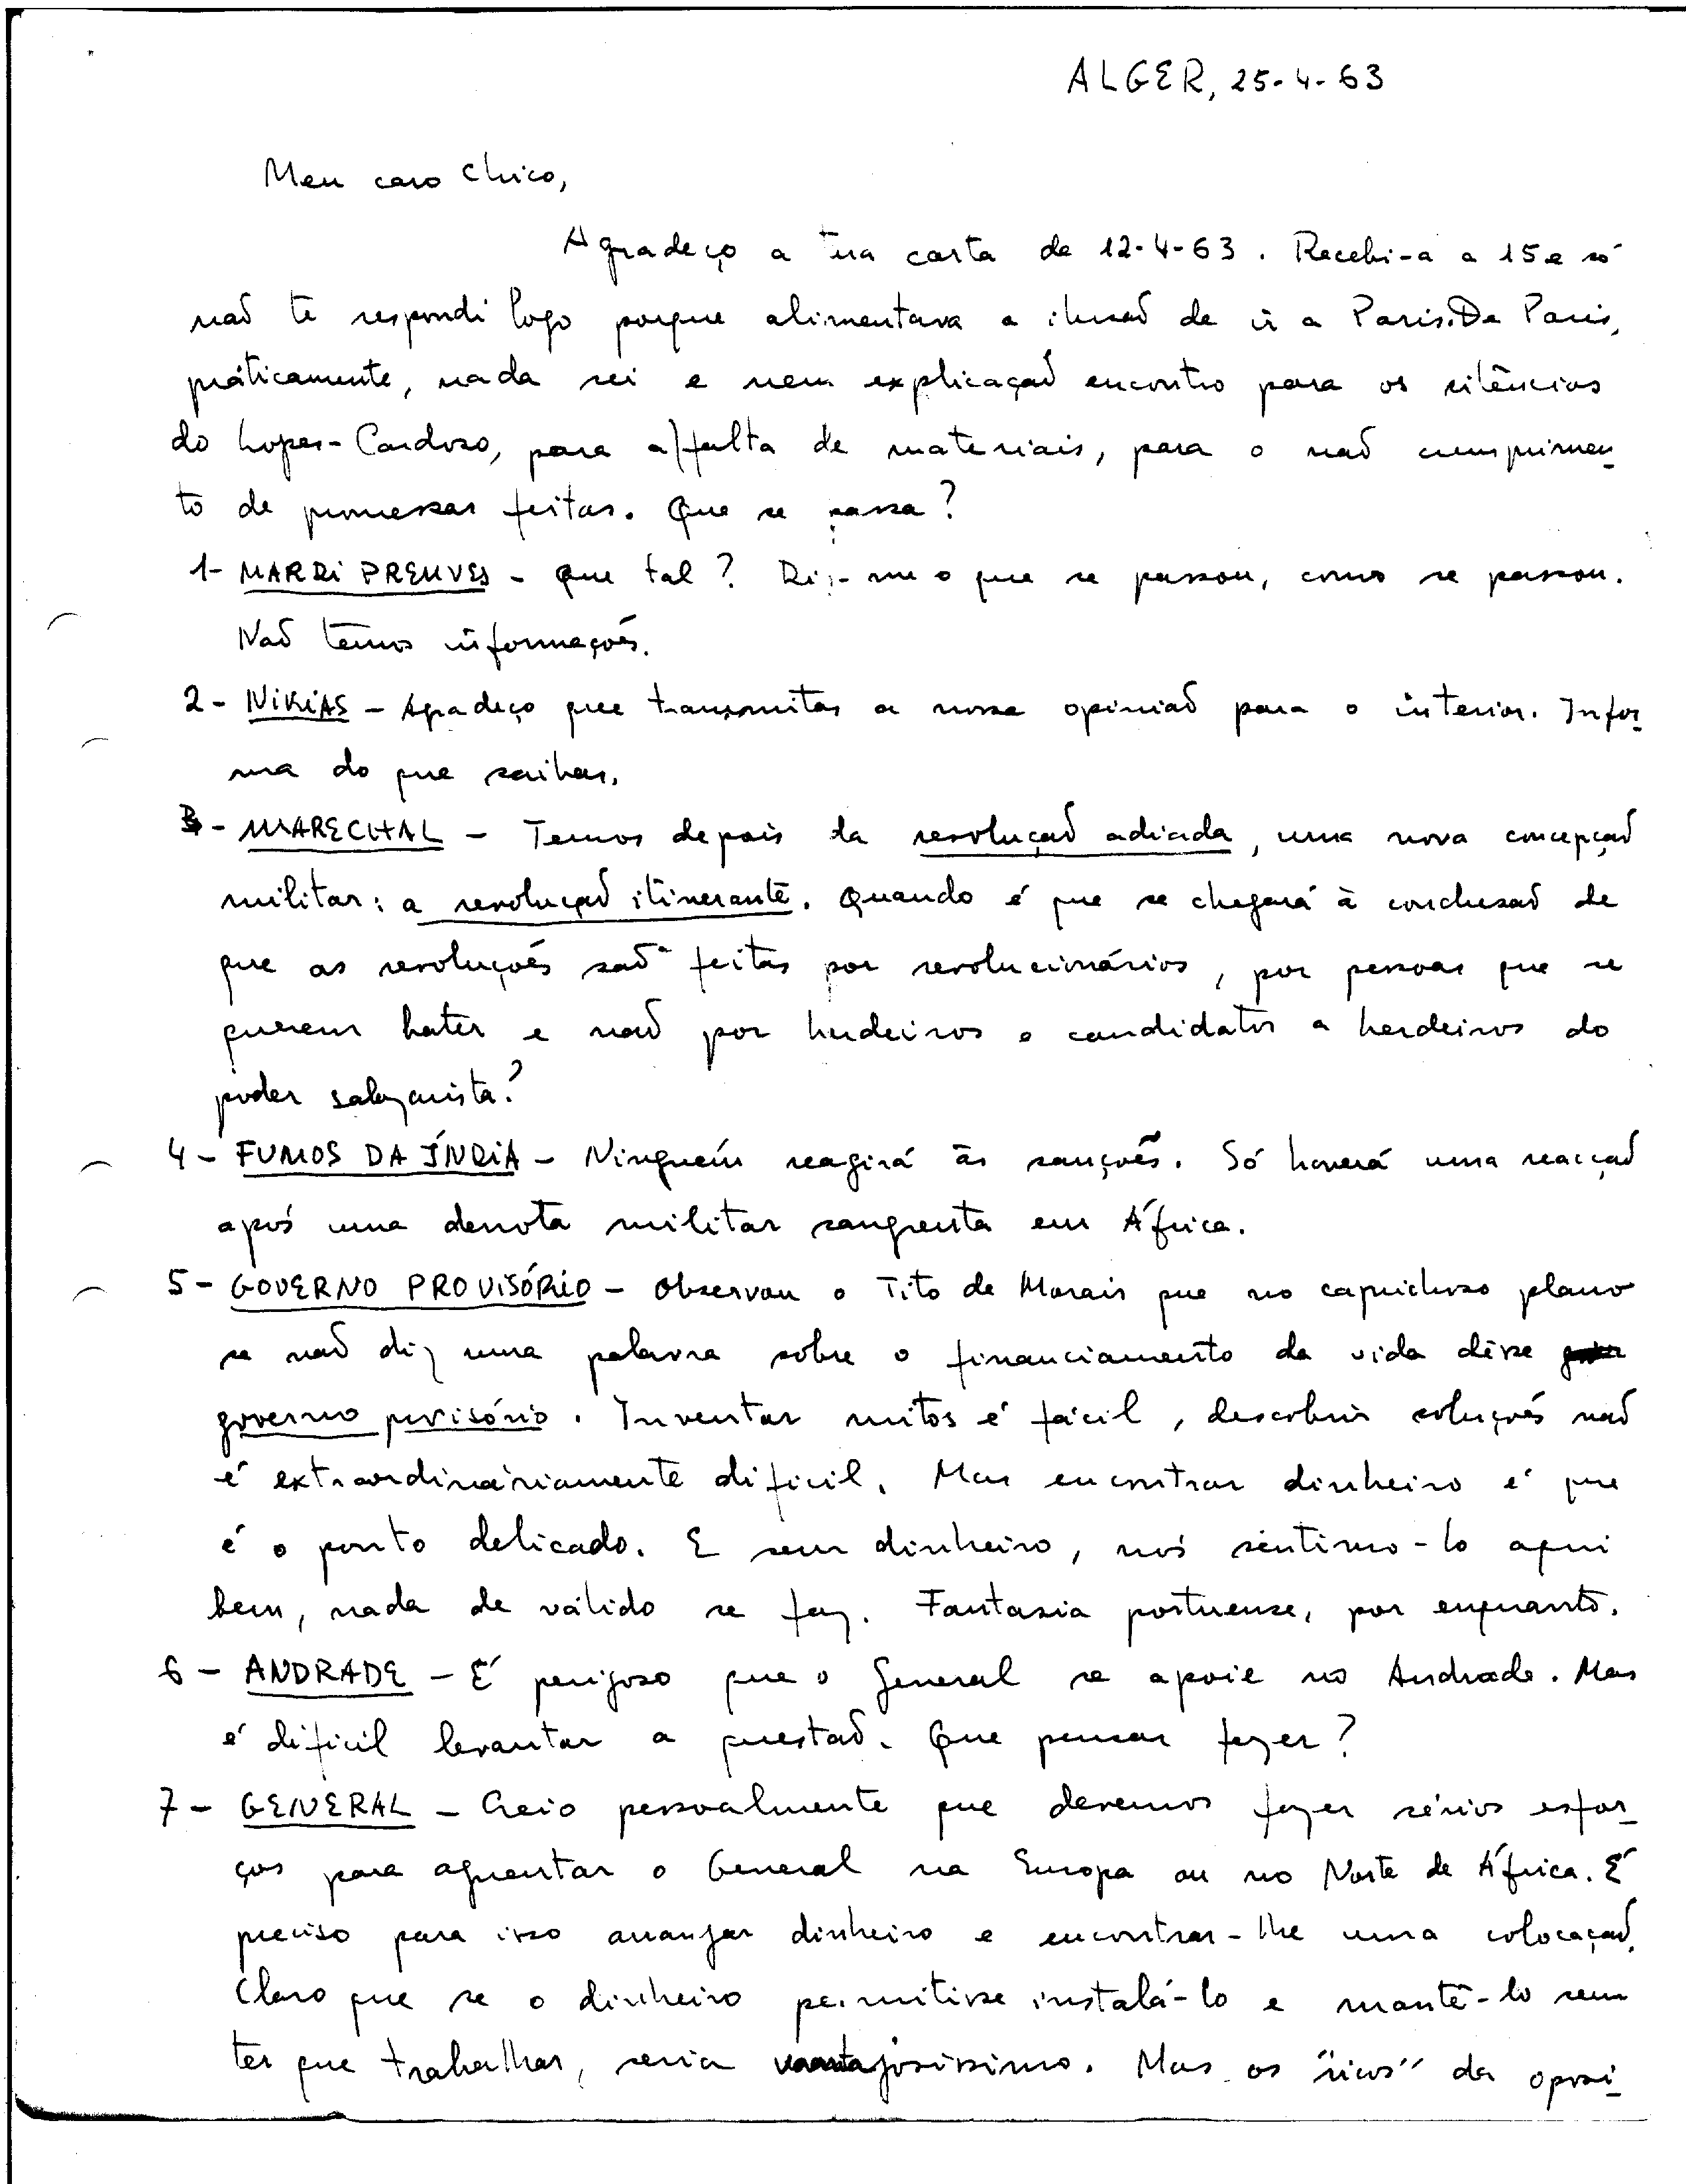 ALGER, 25-4-63
Meu caro Chico,
Agradeço a tua carta de 12-4-63. Recebi-a a 15 e só
não te respondi logo porque alimentava a ilusão de ir a Paris. De Paris,
práticamente, nada sei e nem explicação encontro para os silêncios
do Lopes-Cardoso, para a falta de materiais, para o não cumprimen-
to de promessas feitas. Que se passa?
1- MARDI PREUVES - Que tal? Diz-me o que se passou, como se passou.
Não temos informações.
2- NIKIAS - Agradeço que transmitas a nossa opinião para o interior. Infor-
ma do que saibas.
3- MARECHAL - Temos depois da revolução adiada, uma nova concepção
militar: a revolução itinerante. Quando é que se chegará à conclusão de
que as revoluções são feitas por revolucionários, por pessoas que se
querem bater e não por herdeiros e candidatos a herdeiros do
poder salazarista?
4- FUMOS DA ÍNDIA - Ninguém reagirá às sanções. Só haverá uma reacção
após uma derrota militar sangrenta em África.
5- GOVERNO PROVISÓRIO - Observou o Tito de Morais que no caprichoso plano
se não diz uma palavra sôbre o financiamento da vida dêsse
governo provisório. Inventar mitos é fácil, descobrir soluções não
é extraordinàriamente dificil. Mas encontrar dinheiro é que
é o ponto delicado. E sem dinheiro, nós sentimo-lo aqui
bem, nada de válido se faz. Fantasia portuense, por enquanto.
6- ANDRADE - É perigoso que o General se apoie no Andrade. Mas
é dificil levantar a questão. Que pensas fazer?
7- GENERAL - Creio pessoalmente que devemos fazer sérios esfor-
ços para aguentar o General na Europa ou no Norte de África. É
preciso para isso arranjar dinheiro e encontrar-lhe uma colocação.
Claro que se o dinheiro permitisse instalá-lo e mantê-lo sem
ter que trabalhar, seria vantajosissimo. Mas os "ricos" da oposi-